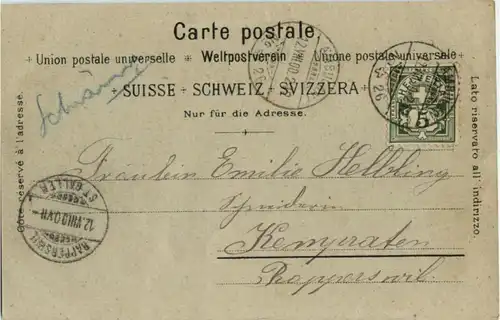 Carte postale.
Union postale universelle Weltpostverein Unione postale universale
SUISSE SCHWEIZ SVIZZERA
Nur für die Adresse.
Côté réservé à l'adresse.
Lato riservato all' indirizzo.
Fräulein Emilie Helbling
Schneiderin
Kempraten
Rapperswil
RAPPERSWIL
12.VIII.00.VII
ST. GALLEN
5